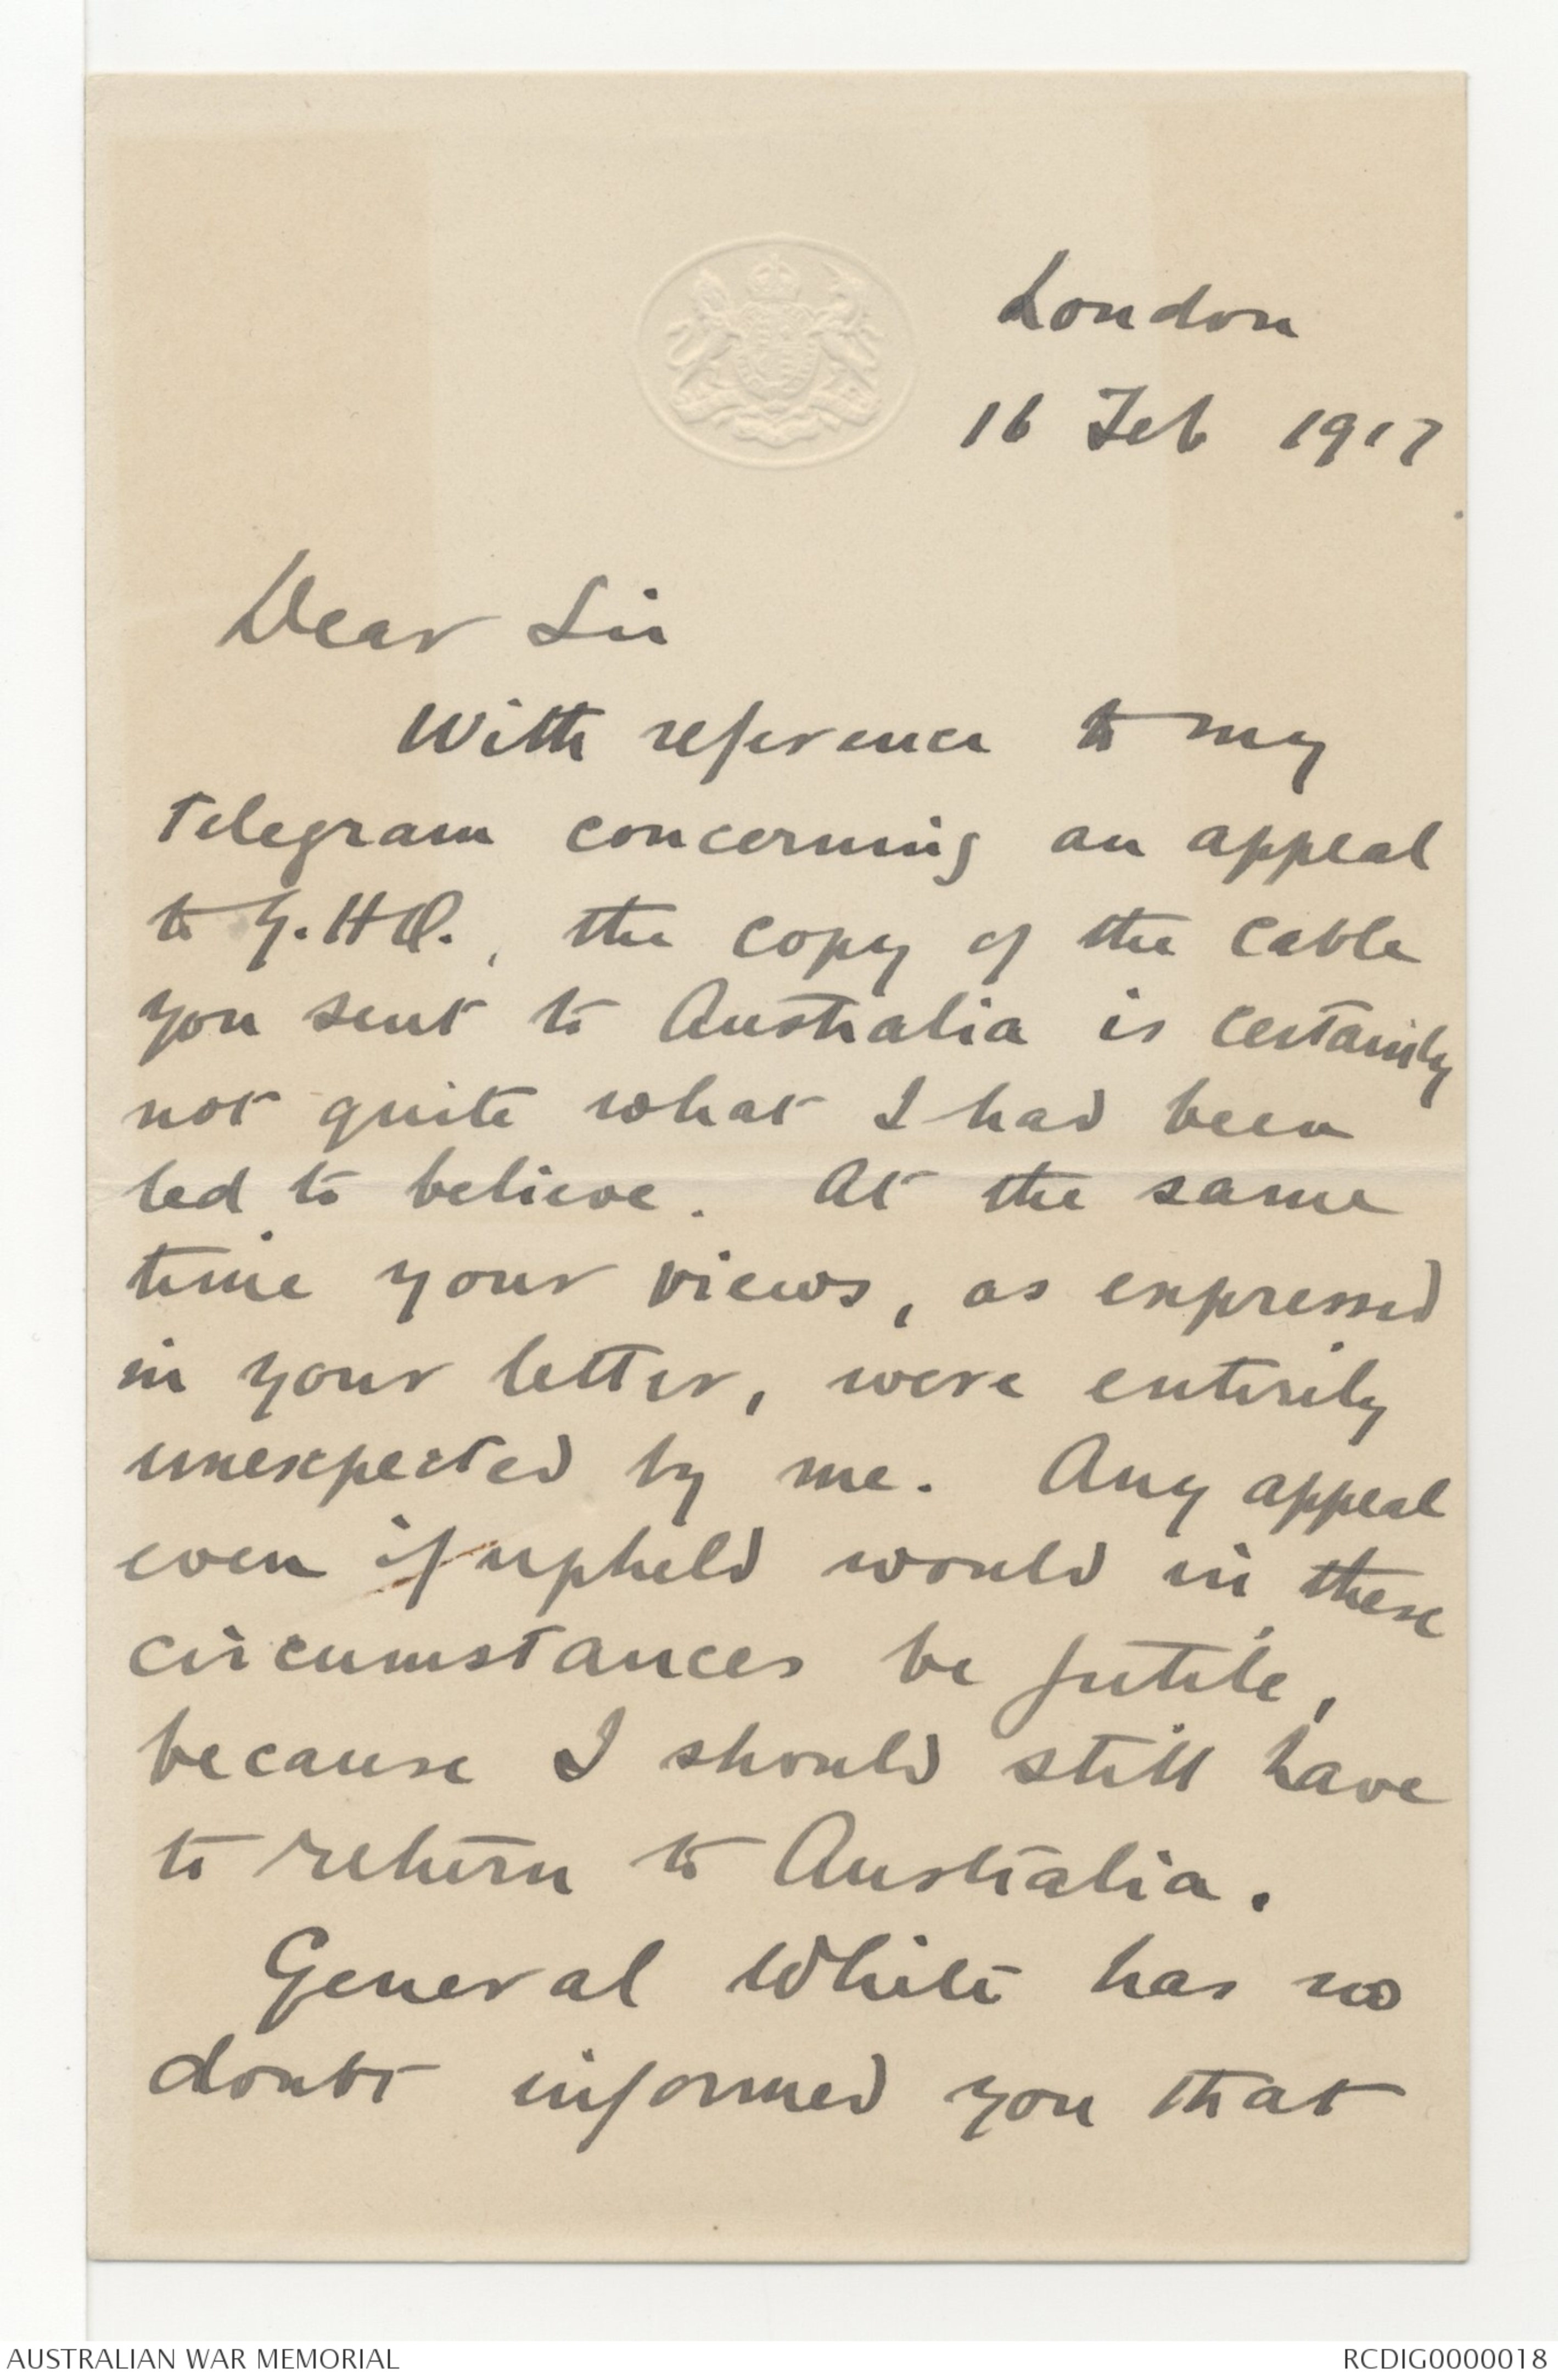 London
16 Feb 1917
Dear Sir
With reference to my
telegram concerning an appeal
to G.HQ., the copy of the cable
you sent to Australia is certainly
not quite what I had been
led to believe. At the same
time your views, as expressed
in your letter, were entirely
unexpected by me. Any appeal
even if upheld would in these
circumstances be futile,
because I should still have
to return to Australia.
General White has no
doubt informed you that
AUSTRALIAN WAR MEMORIAL
RCDIG0000018